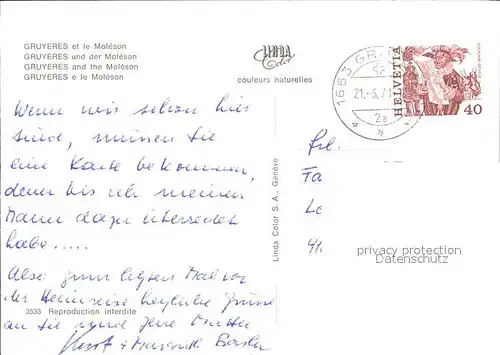 GRUYERES et le Moléson
GRUYERES und der Moléson
GRUYERES and the Moléson
GRUYERES e le Moléson
LINDA
Color
couleurs naturelles
1663 GR
21.-6.7
2a
HELVETIA
40
Wenn wir schon hier
sind, müssen Sie
eine Karte bekommen,
denn bis ich meinen
Mann dazu überredet
habe.....
Also zum letzten Mal vor
der Heimreise herzliche Grüsse
an Sie und Ihre Mutter
Horst +
Frl.
Fa
Le
privacy protection
AnsichtskartenCenter
Linda Color S. A., Genève
3533 Reproduction interdite